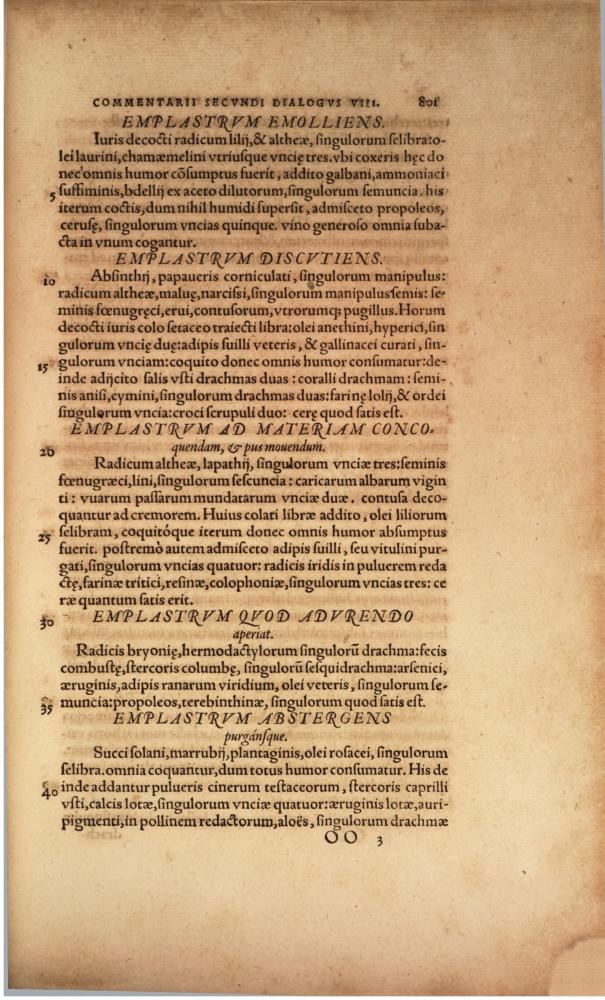 COMMENTARII SECVNDI DIALOGVS VIII. 801
EMPLASTRVM EMOLLIENS.
Iuris decocti radicum lilij,& altheæ, singulorum selibra:o-
lei laurini,chamæmelini vtriusque vncię tres.vbi coxeris hęc do
nec omnis humor cõsumptus fuerit, addito galbani,ammoniaci
5 suffiminis,bdellij ex aceto dilutorum,singulorum semuncia. his
iterum coctis,dum nihil humidi supersit, admisceto propoleos,
cerusę, singulorum vncias quinque. vino generoso omnia suba-
cta in vnum cogantur.
EMPLASTRVM DISCVTIENS.
10 Absinthij, papaueris corniculati, singulorum manipulus:
radicum altheæ,maluę,narcissi,singulorum manipulus semis: se-
minis fœnugręci,erui,contusorum,vtrorumq; pugillus.Horum
decocti iuris colo setaceo traiecti libra:olei anethini,hyperici,sin
gulorum vncię duę:adipis suilli veteris, & gallinacei curati, sin-
15 gulorum vnciam:coquito donec omnis humor consumatur:de-
inde adijcito salis vsti drachmas duas: coralli drachmam: semi-
nis anisi,cymini,singulorum drachmas duas:farinę lolij,& ordei
singulorum vncia:croci scrupuli duo: cerę quod satis est.
EMPLASTRVM AD MATERIAM CONCO-
20 quendam, & pus mouendum.
Radicum altheæ, lapathij, singulorum vnciæ tres:seminis
fœnugræci,lini,singulorum sescuncia: caricarum albarum vigin
ti: vuarum passarum mundatarum vnciæ duæ. contusa deco-
quantur ad cremorem. Huius colati libræ addito, olei liliorum
25 selibram, coquitóque iterum donec omnis humor absumptus
fuerit. postremò autem admisceto adipis suilli, seu vitulini pur-
gati,singulorum vncias quatuor: radicis iridis in puluerem reda
ctę,farinæ tritici,resinæ,colophoniæ,singulorum vncias tres: ce
ræ quantum satis erit.
30 EMPLASTRVM QVOD ADVRENDO
aperiat.
Radicis bryonię,hermodactylorum singulorũ drachma:fecis
combustę,stercoris columbę, singulorũ sesquidrachma:arsenici,
æruginis,adipis ranarum viridium, olei veteris, singulorum se-
35 muncia:propoleos,terebinthinæ, singulorum quod satis est.
EMPLASTRVM ABSTERGENS
purgánsque.
Succi solani,marrubij,plantaginis,olei rosacei, singulorum
selibra.omnia coquantur,dum totus humor consumatur. His de
40 inde addantur pulueris cinerum testaceorum, stercoris caprilli
vsti,calcis lotæ,singulorum vnciæ quatuor:æruginis lotæ,auri-
pigmenti,in pollinem redactorum,aloës, singulorum drachmæ
OO 3